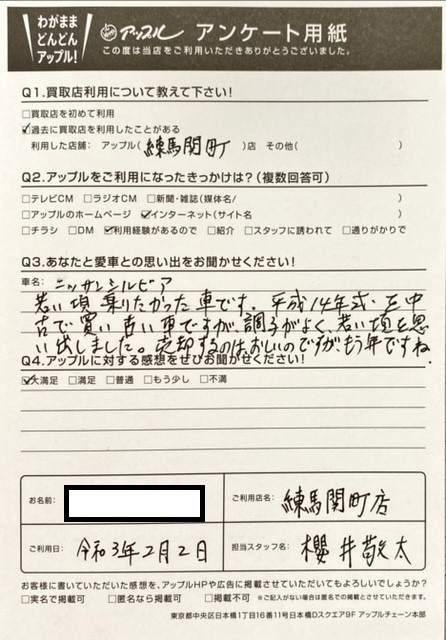 わがまま
どんどん
アップル!
アップル アンケート用紙
この度は当店をご利用いただきありがとうございました。
Q1.買取店利用について教えて下さい!
□買取店を初めて利用
☑過去に買取店を利用したことがある
利用した店舗: アップル(練馬関町)店 その他( )
Q2.アップルをご利用になったきっかけは?(複数回答可)
□テレビCM □ラジオCM □新聞・雑誌(媒体名/ )
□アップルのホームページ ☑インターネット(サイト名 )
□チラシ □DM ☑利用経験があるので □紹介 □スタッフに誘われて □通りがかりで
Q3.あなたと愛車との思い出をお聞かせください!
車名: ニッサンシルビア
若い頃 乗りたかった車です。平成14年式・を中
古で買い 古い車ですが、調子がよく、若い頃を思
い出しました。売却するのは、おしいのですが、もう年ですね。
Q4.アップルに対する感想をぜひお聞かせください!
☑大満足 □満足 □普通 □もう少し □不満
お名前:
ご利用店名: 練馬関町店
ご利用日: 令和3年2月2日
担当スタッフ名: 櫻井敬太
お客様に書いていただいた感想を、アップルHPや広告に掲載させていただいてもよろしいでしょうか?
□実名で掲載可 □匿名なら掲載可 □掲載不可 ※ご記入がない場合は匿名での掲載とさせていただきます。
東京都中央区日本橋1丁目16番11号日本橋Dスクエア9F アップルチェーン本部